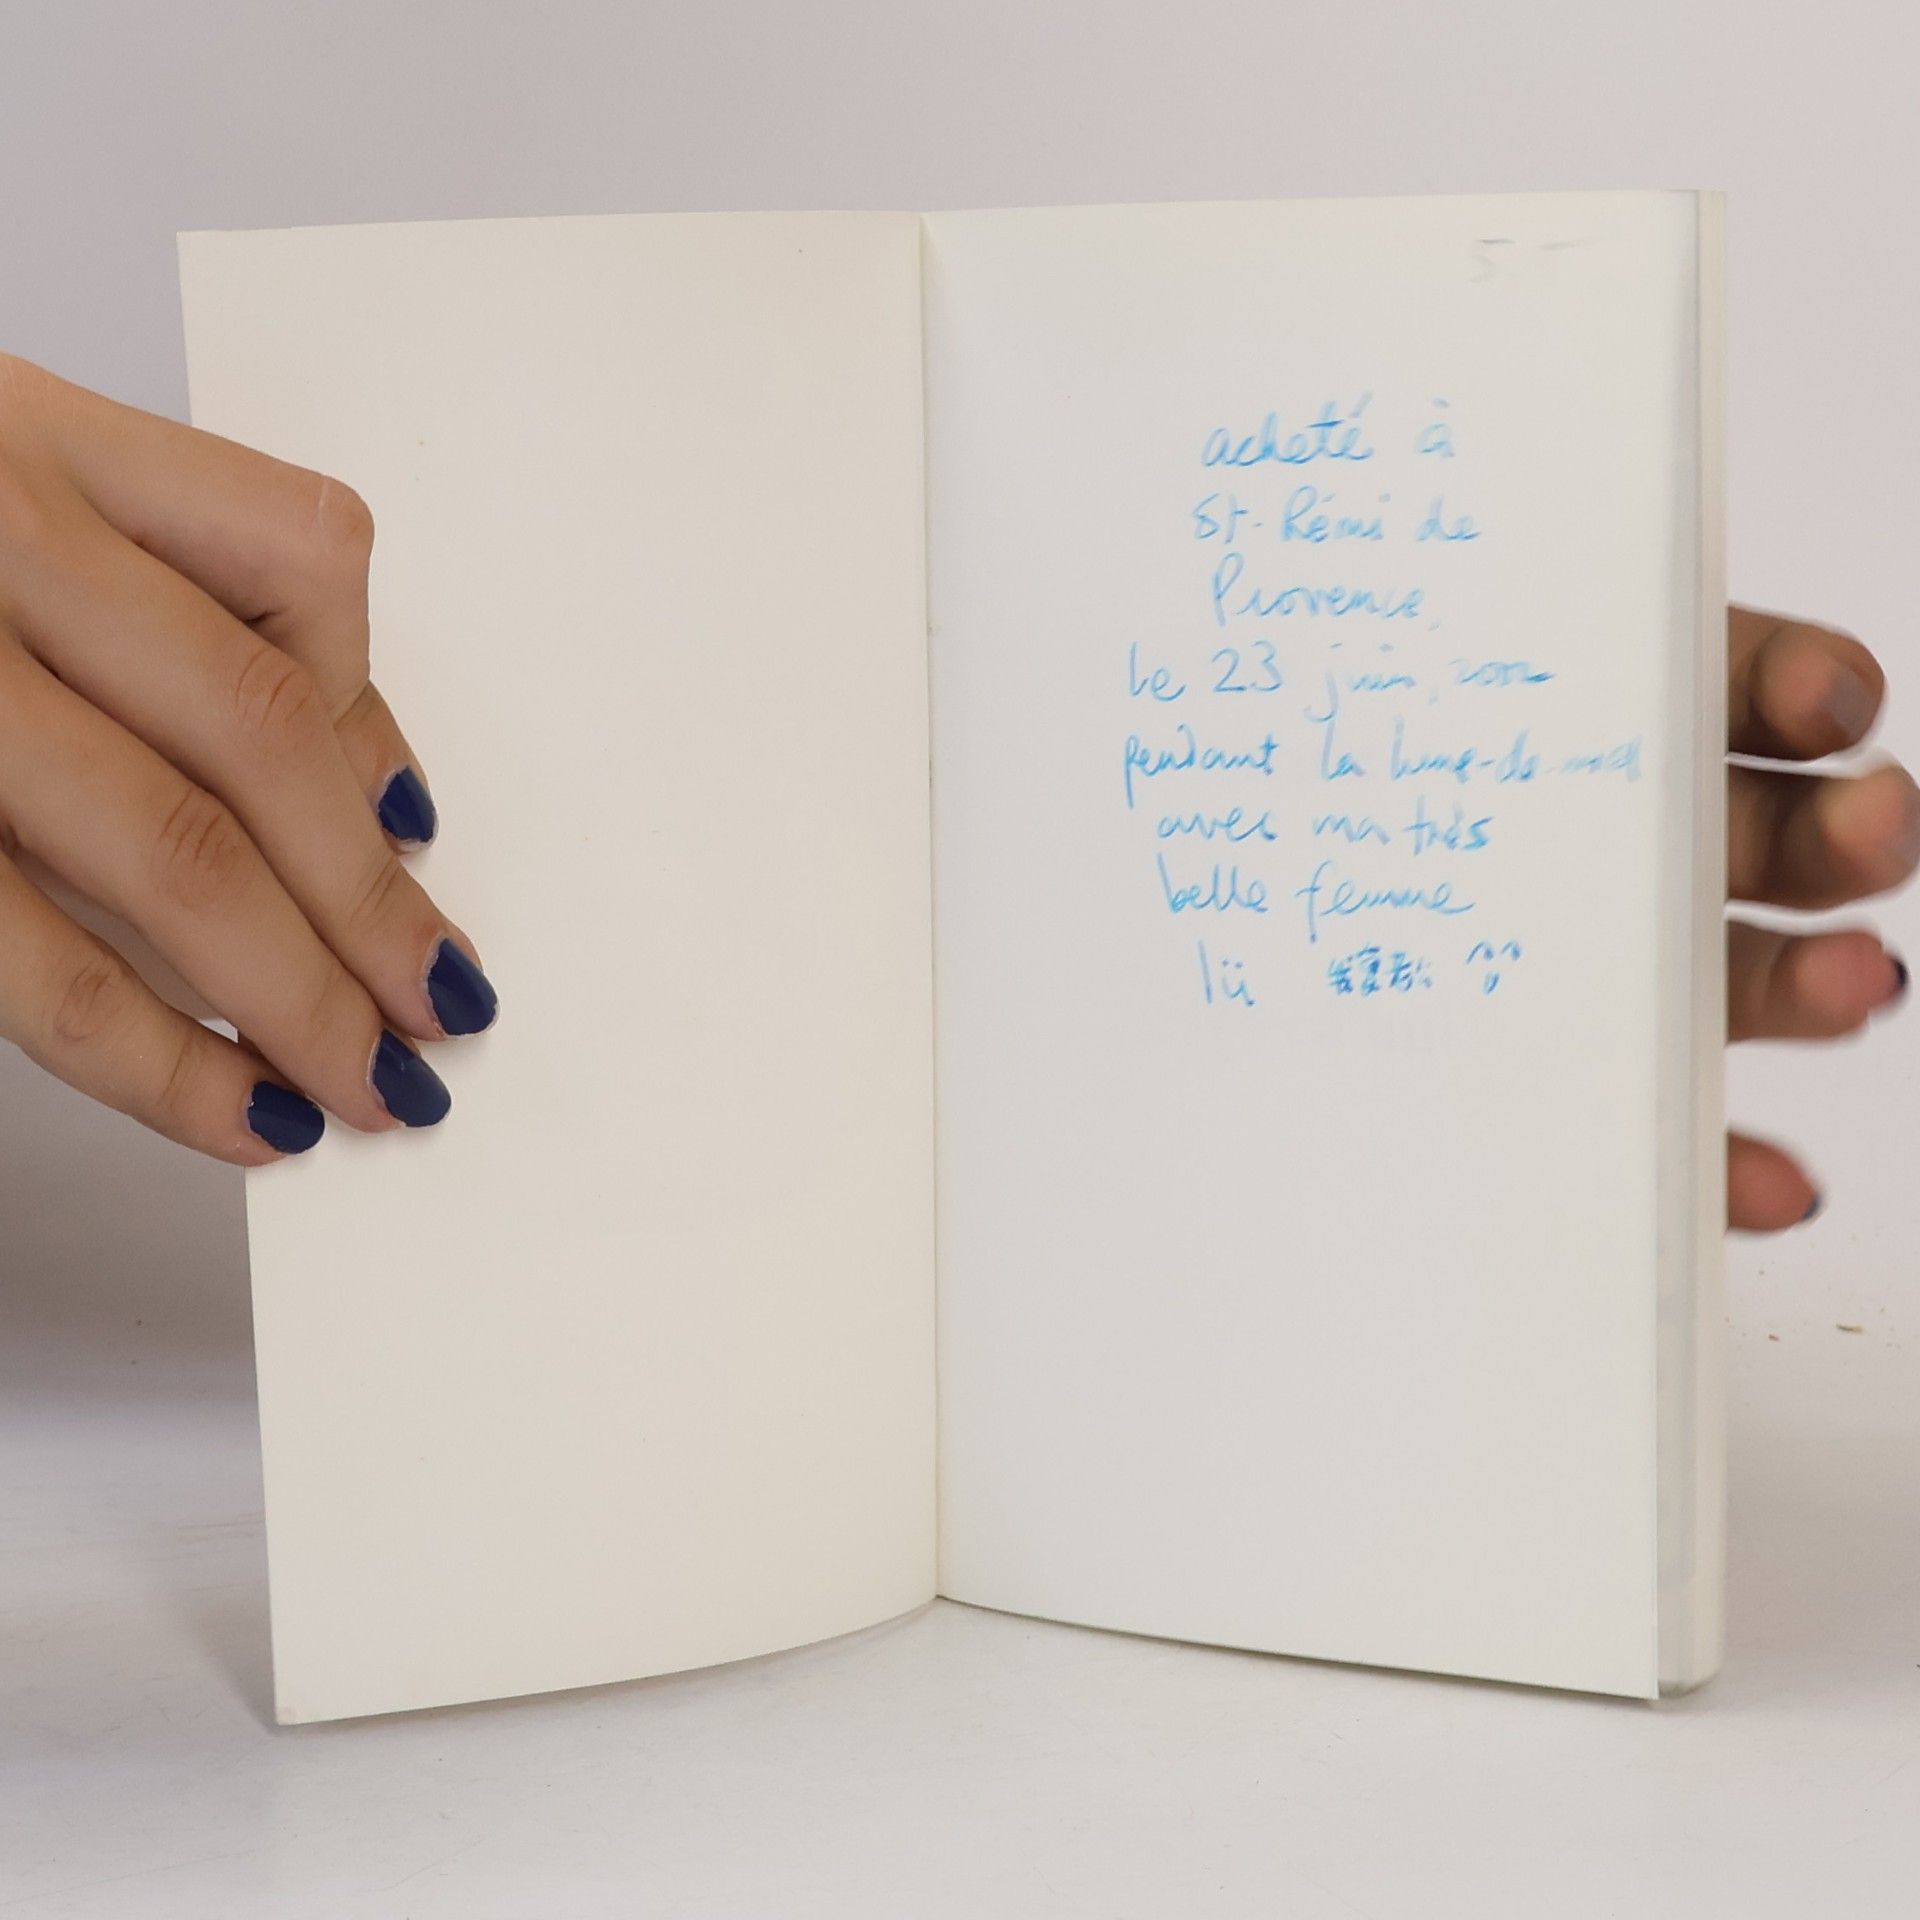 acheté à
St-Rémi de
Provence,
le 23 juin, 2002
pendant la lune-de-miel
avec ma très
belle femme
lü